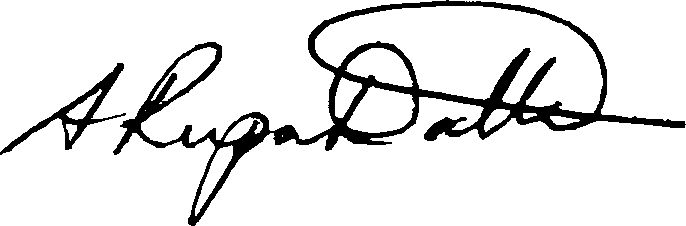 A Rupa Datta